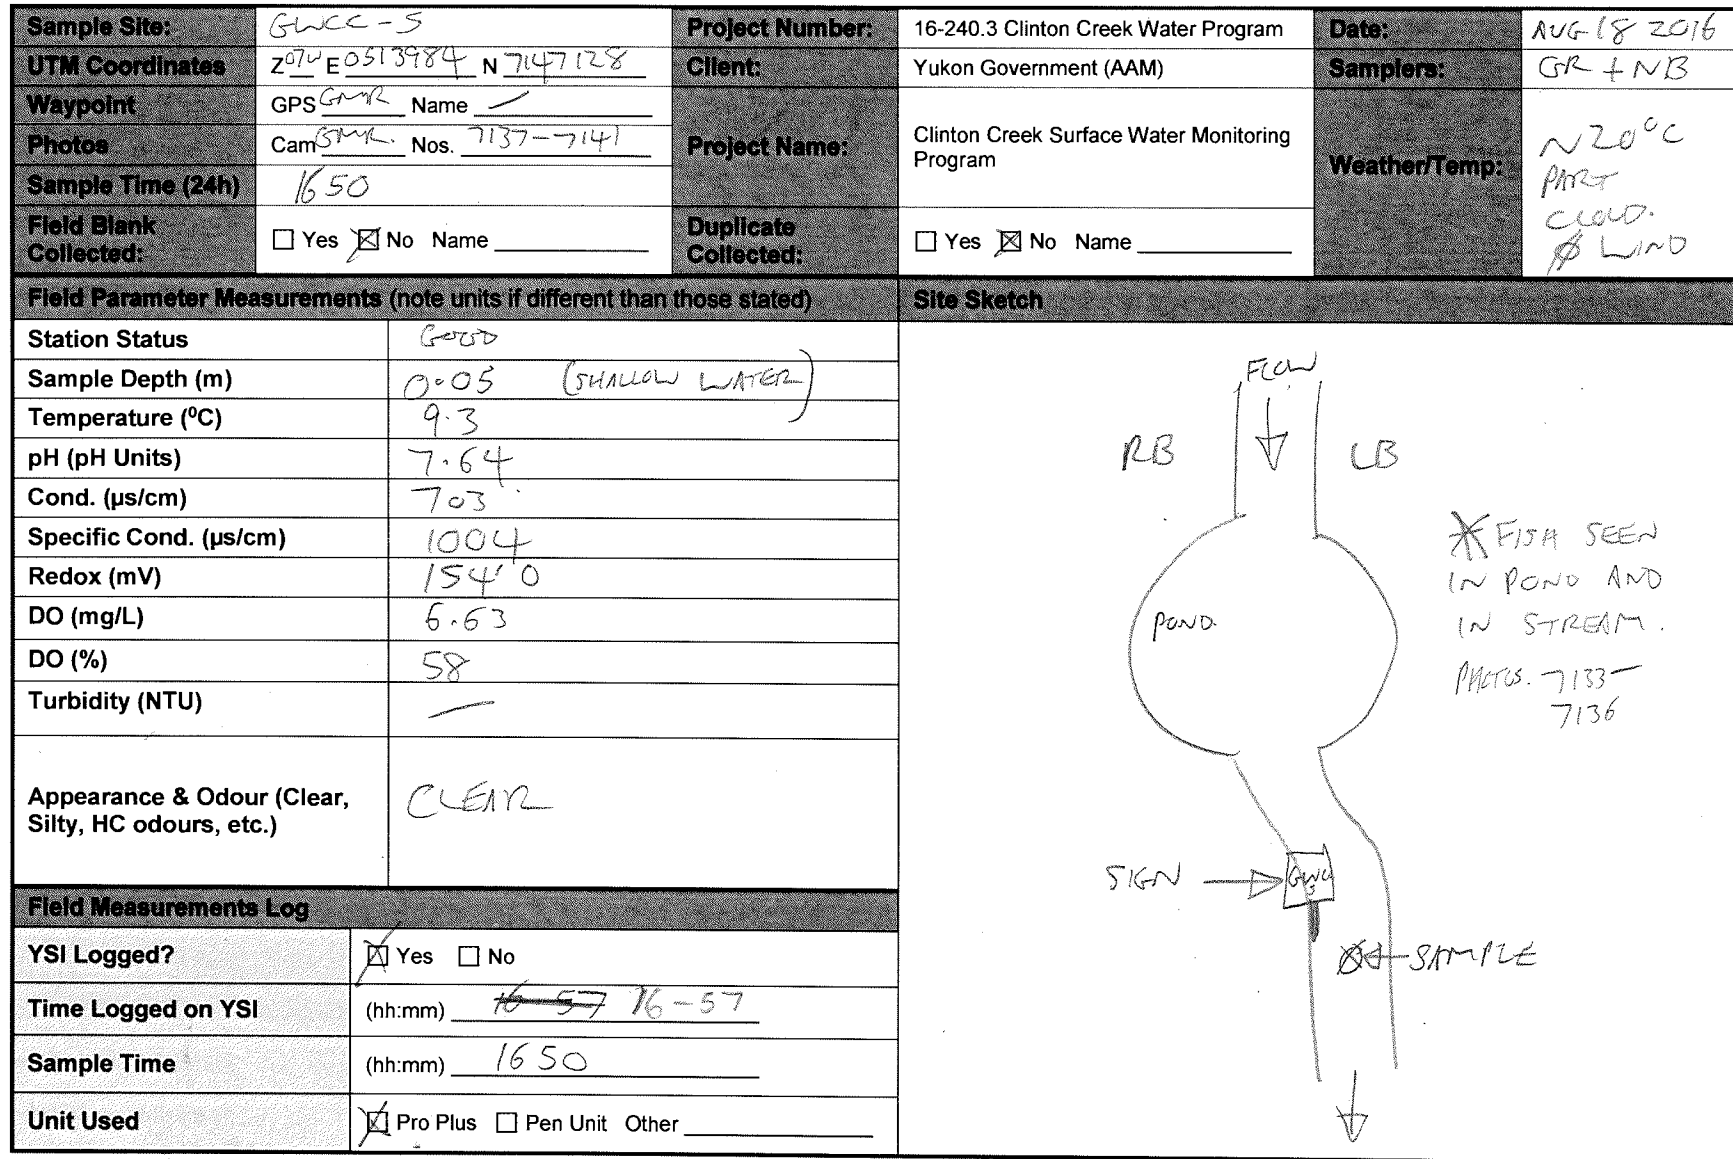 Sample Site: GWCC-5 Project Number: 16-240.3 Clinton Creek Water Program Date: AUG 18 2016
UTM Coordinates Z 07W E 0513984 N 7147128 Client: Yukon Government (AAM) Samplers: GR + NB
Waypoint GPS GMR Name —
Photos Cam GMR. Nos. 7137-7141 Project Name: Clinton Creek Surface Water Monitoring
Program
Weather/Temp: ~20°C
PART
CLOUD.
Ø WIND
Sample Time (24h) 1650
Field Blank
Collected: ☐ Yes ☒ No Name
Duplicate
Collected: ☐ Yes ☒ No Name
Field Parameter Measurements (note units if different than those stated) Site Sketch
Station Status GOOD
Sample Depth (m) 0.05 (SHALLOW WATER)
Temperature (⁰C) 9.3
pH (pH Units) 7.64
Cond. (µs/cm) 703
Specific Cond. (µs/cm) 1004
Redox (mV) 154.0
DO (mg/L) 6.63
DO (%) 58
Turbidity (NTU) —
Appearance & Odour (Clear,
Silty, HC odours, etc.) CLEAR
Field Measurements Log
YSI Logged? ☒ Yes ☐ No
Time Logged on YSI (hh:mm) 16-57 16-57
Sample Time (hh:mm) 1650
Unit Used ☒ Pro Plus ☐ Pen Unit Other
FLOW
RB LB
* FISH SEEN
IN POND AND
IN STREAM.
PHOTOS. 7133-
7136
POND.
SIGN GWCC
5
SAMPLE